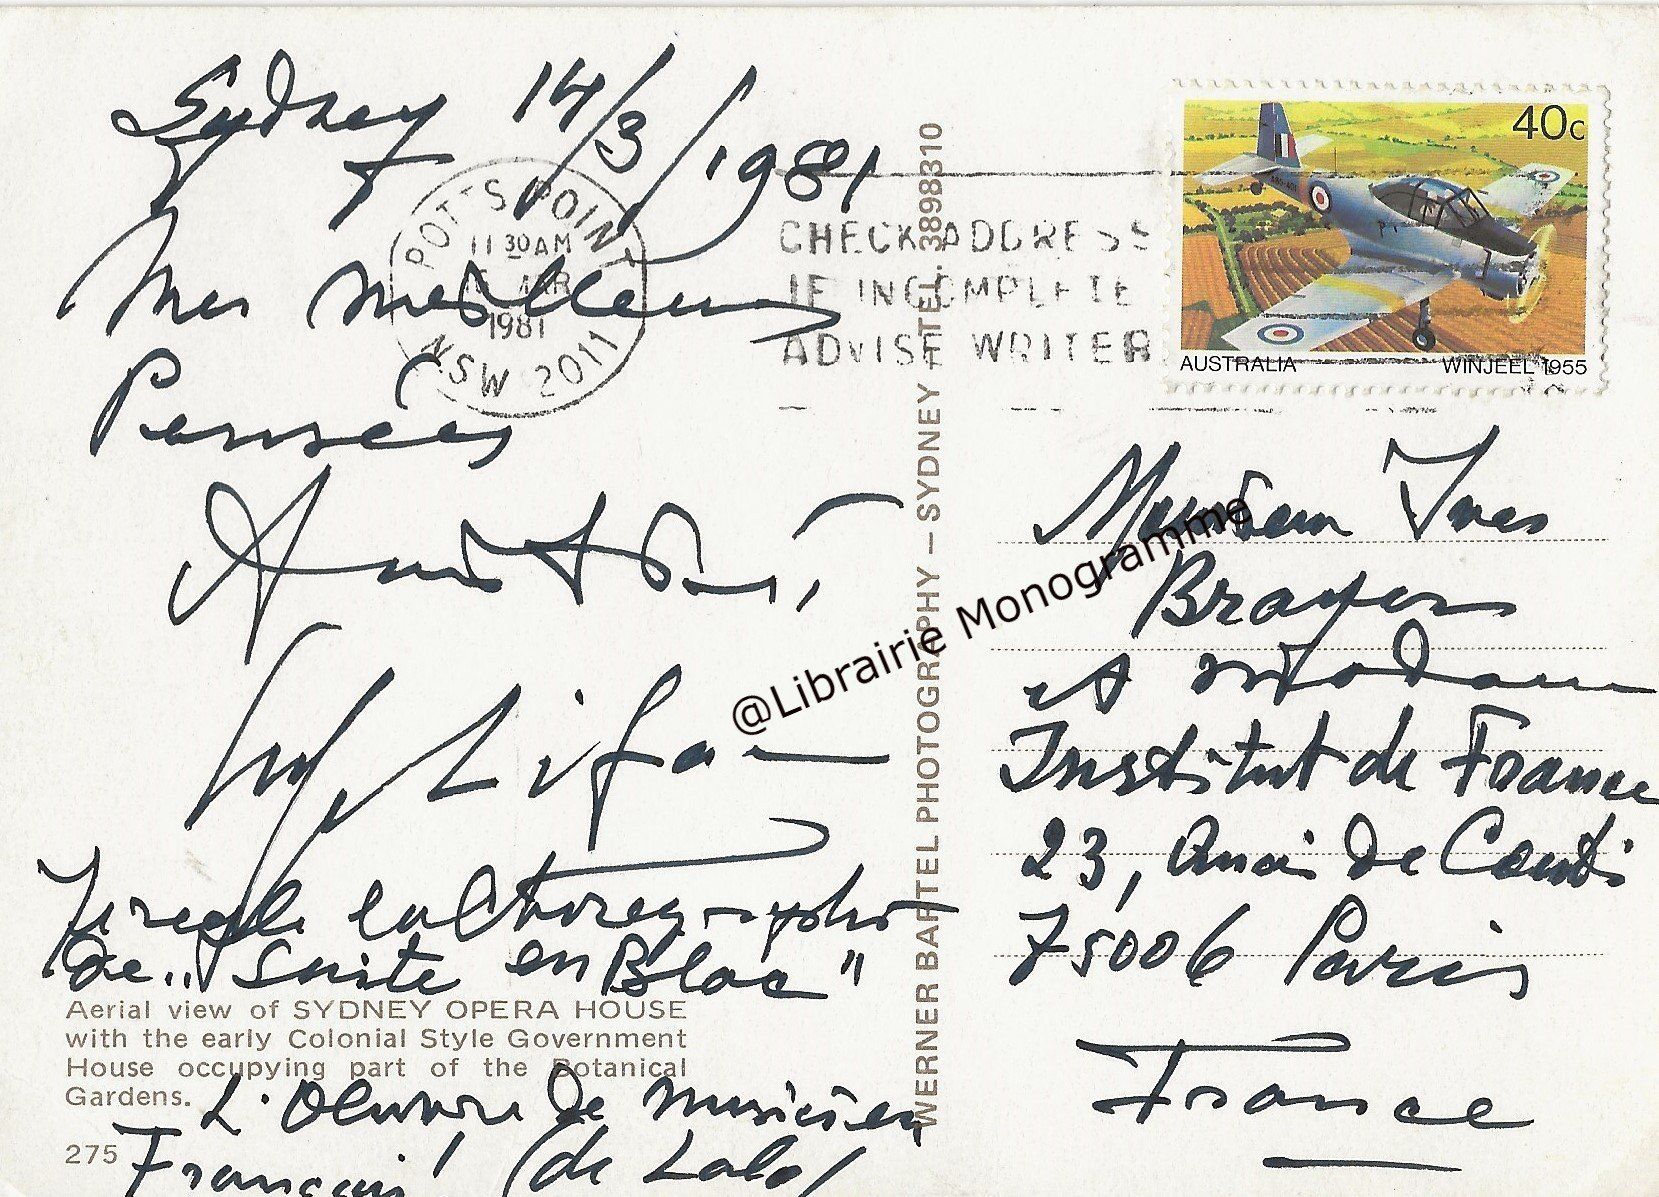 Sydney 14/3/1981
Mes meilleures
Pensées
Amitiés
Serge Lifar
Je règle la Chorégraphie
de „Suite en Blanc"
L'Oeuvre de musicien
Français (de Lalo)
POTTS POINT
11 30 AM
MAR
1981
NSW 2011
CHECK ADDRESS
IF INCOMPLETE
ADVISE WRITER
40c
AUSTRALIA WINJEEL 1955
Monsieur Yves
Brayer
et Madame
Institut de France
23, Quai de Conti
75006 Paris
France
WERNER BARTEL PHOTOGRAPHY – SYDNEY / TEL. 3898310
@Librairie Monogramme
Aerial view of SYDNEY OPERA HOUSE
with the early Colonial Style Government
House occupying part of the Botanical
Gardens.
275